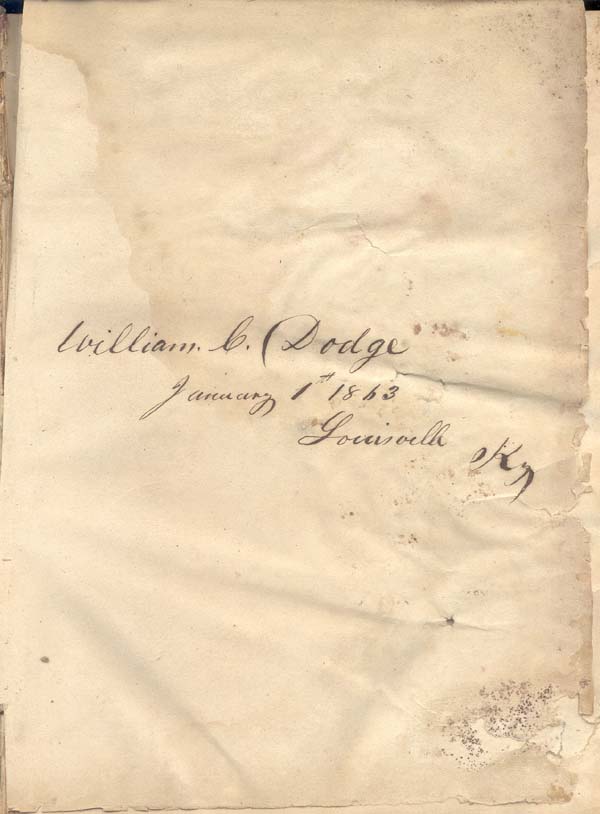 William. C. Dodge
January 1st 1863
Louisville Ky